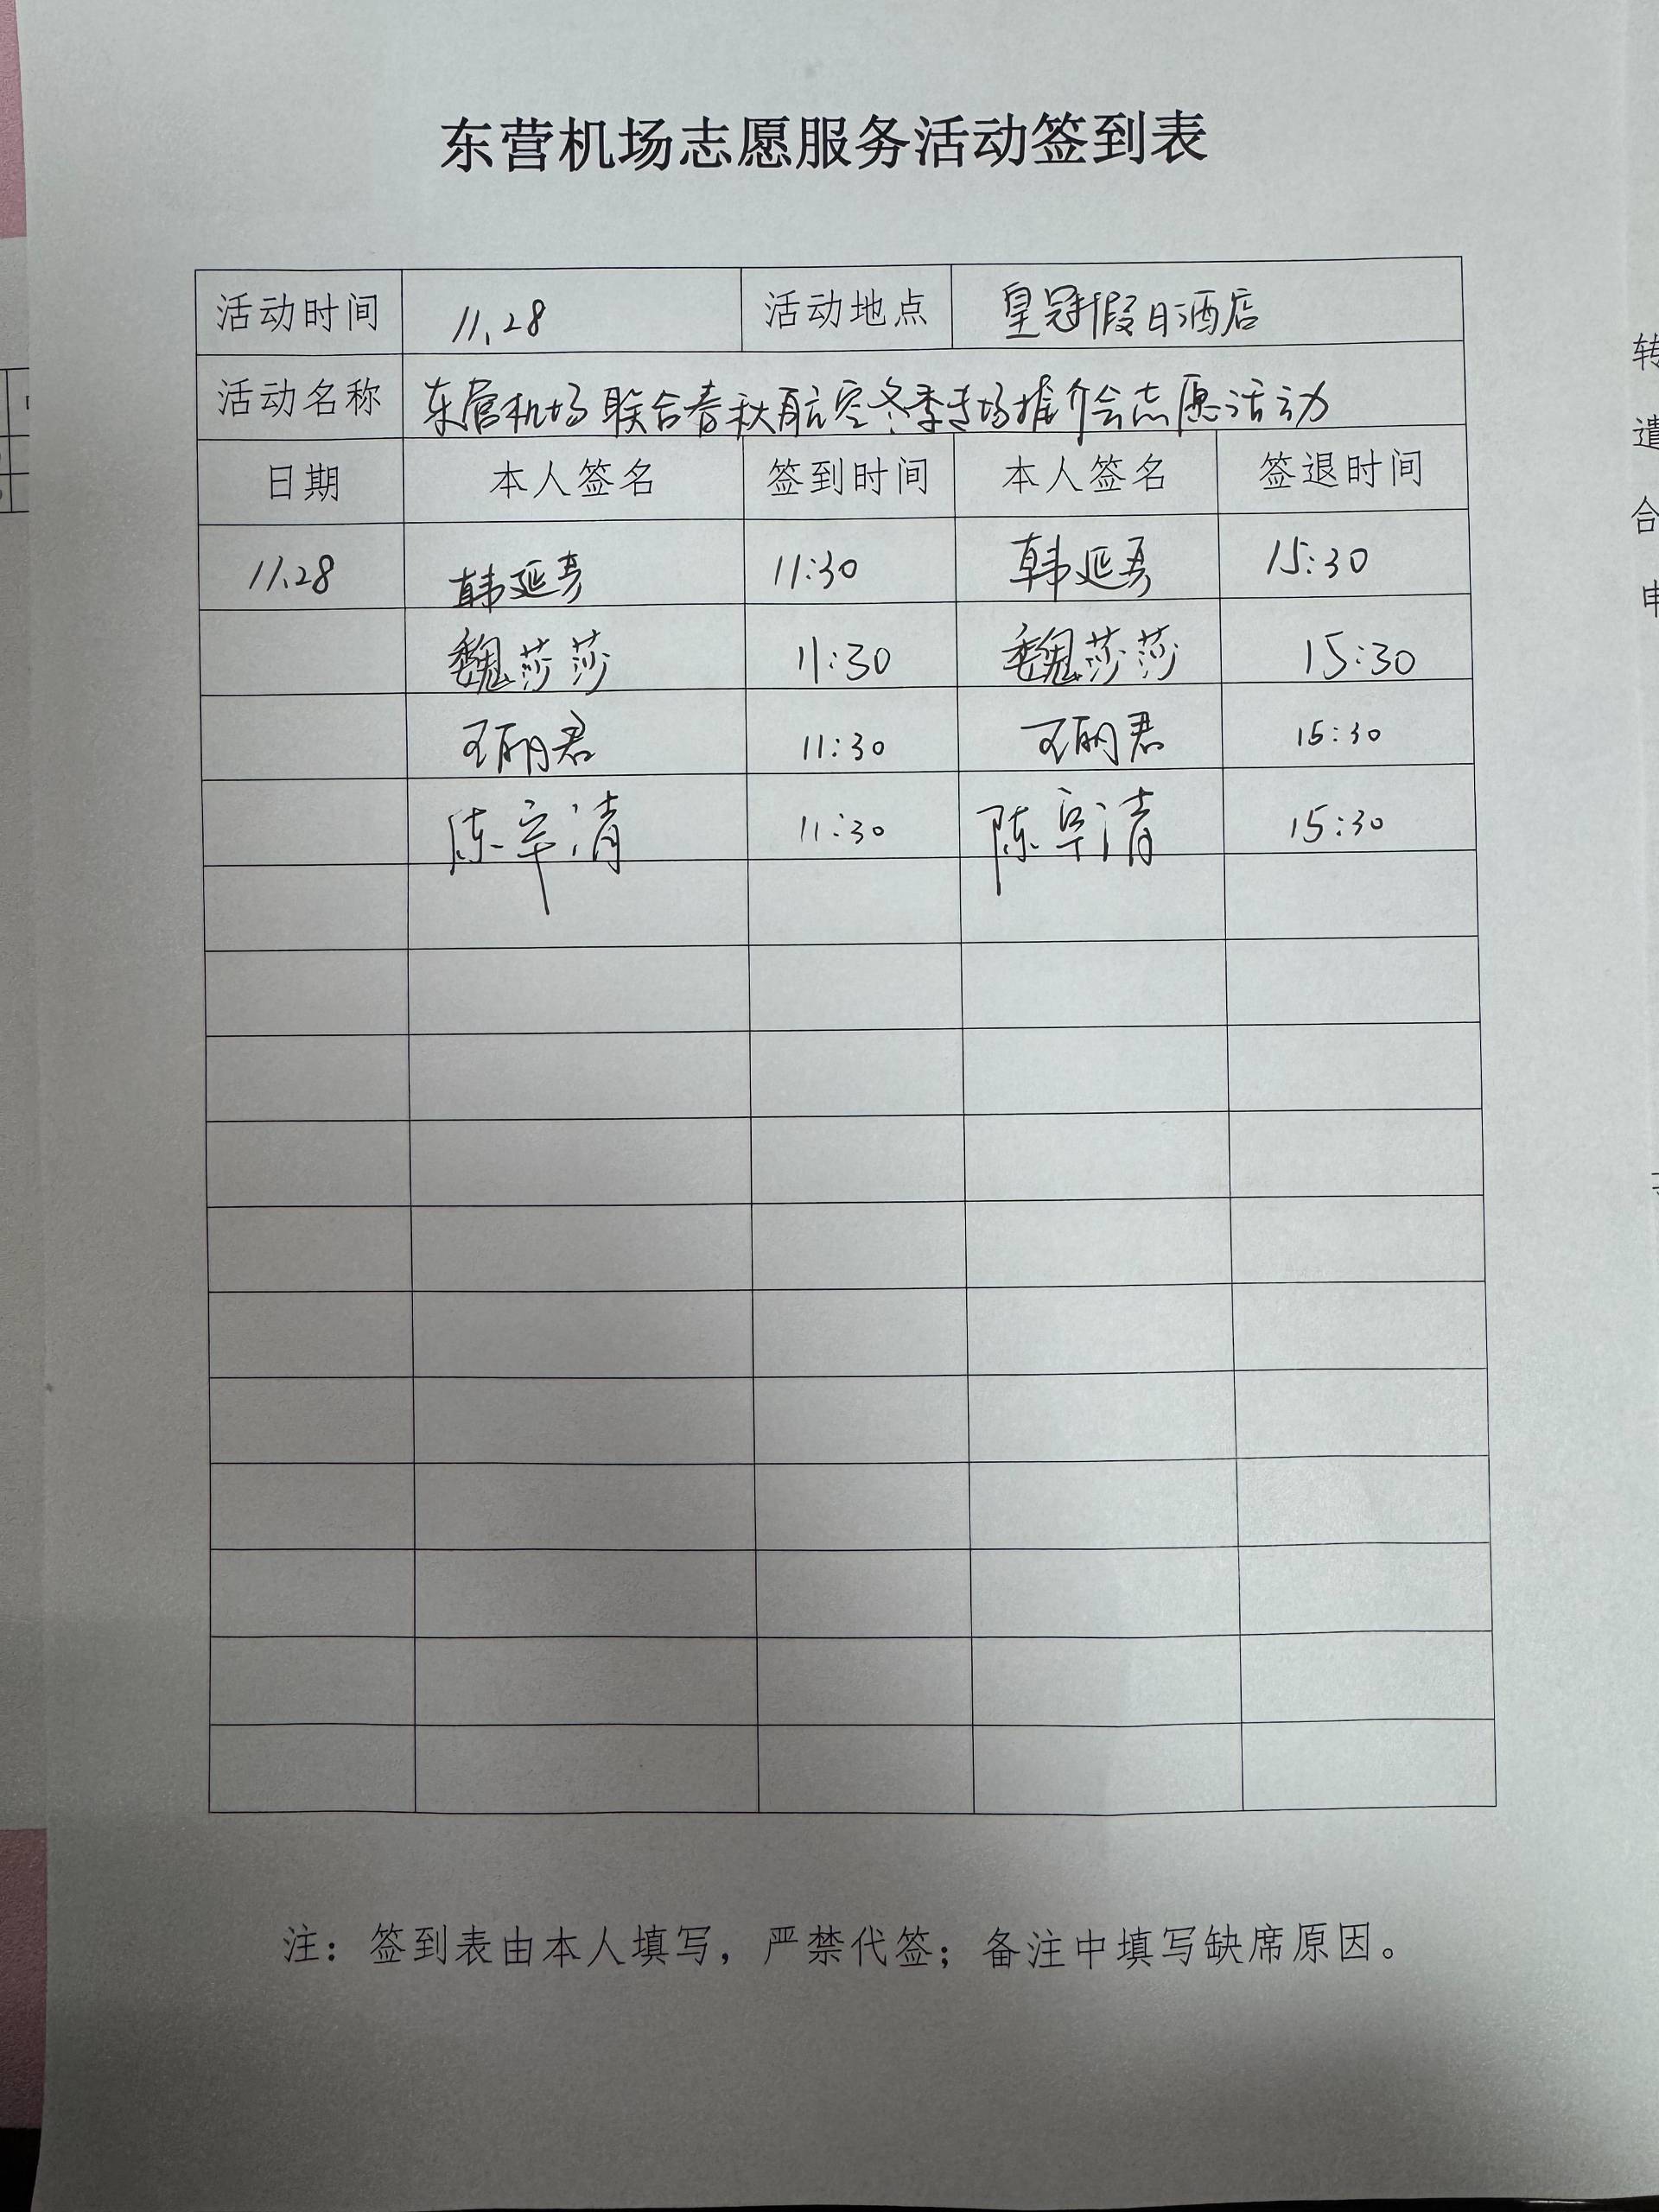 东营机场志愿服务活动签到表
活动时间 11.28 活动地点 皇冠假日酒店
活动名称 东营机场联合春秋航空冬季专场推介会志愿活动
日期 本人签名 签到时间 本人签名 签退时间
11.28 韩延 11:30 韩延 15:30
魏莎莎 11:30 魏莎莎 15:30
王丽君 11:30 王丽君 15:30
陈 清 11:30 陈 清 15:30
注：签到表由本人填写，严禁代签；备注中填写缺席原因。
转
遣
合
申